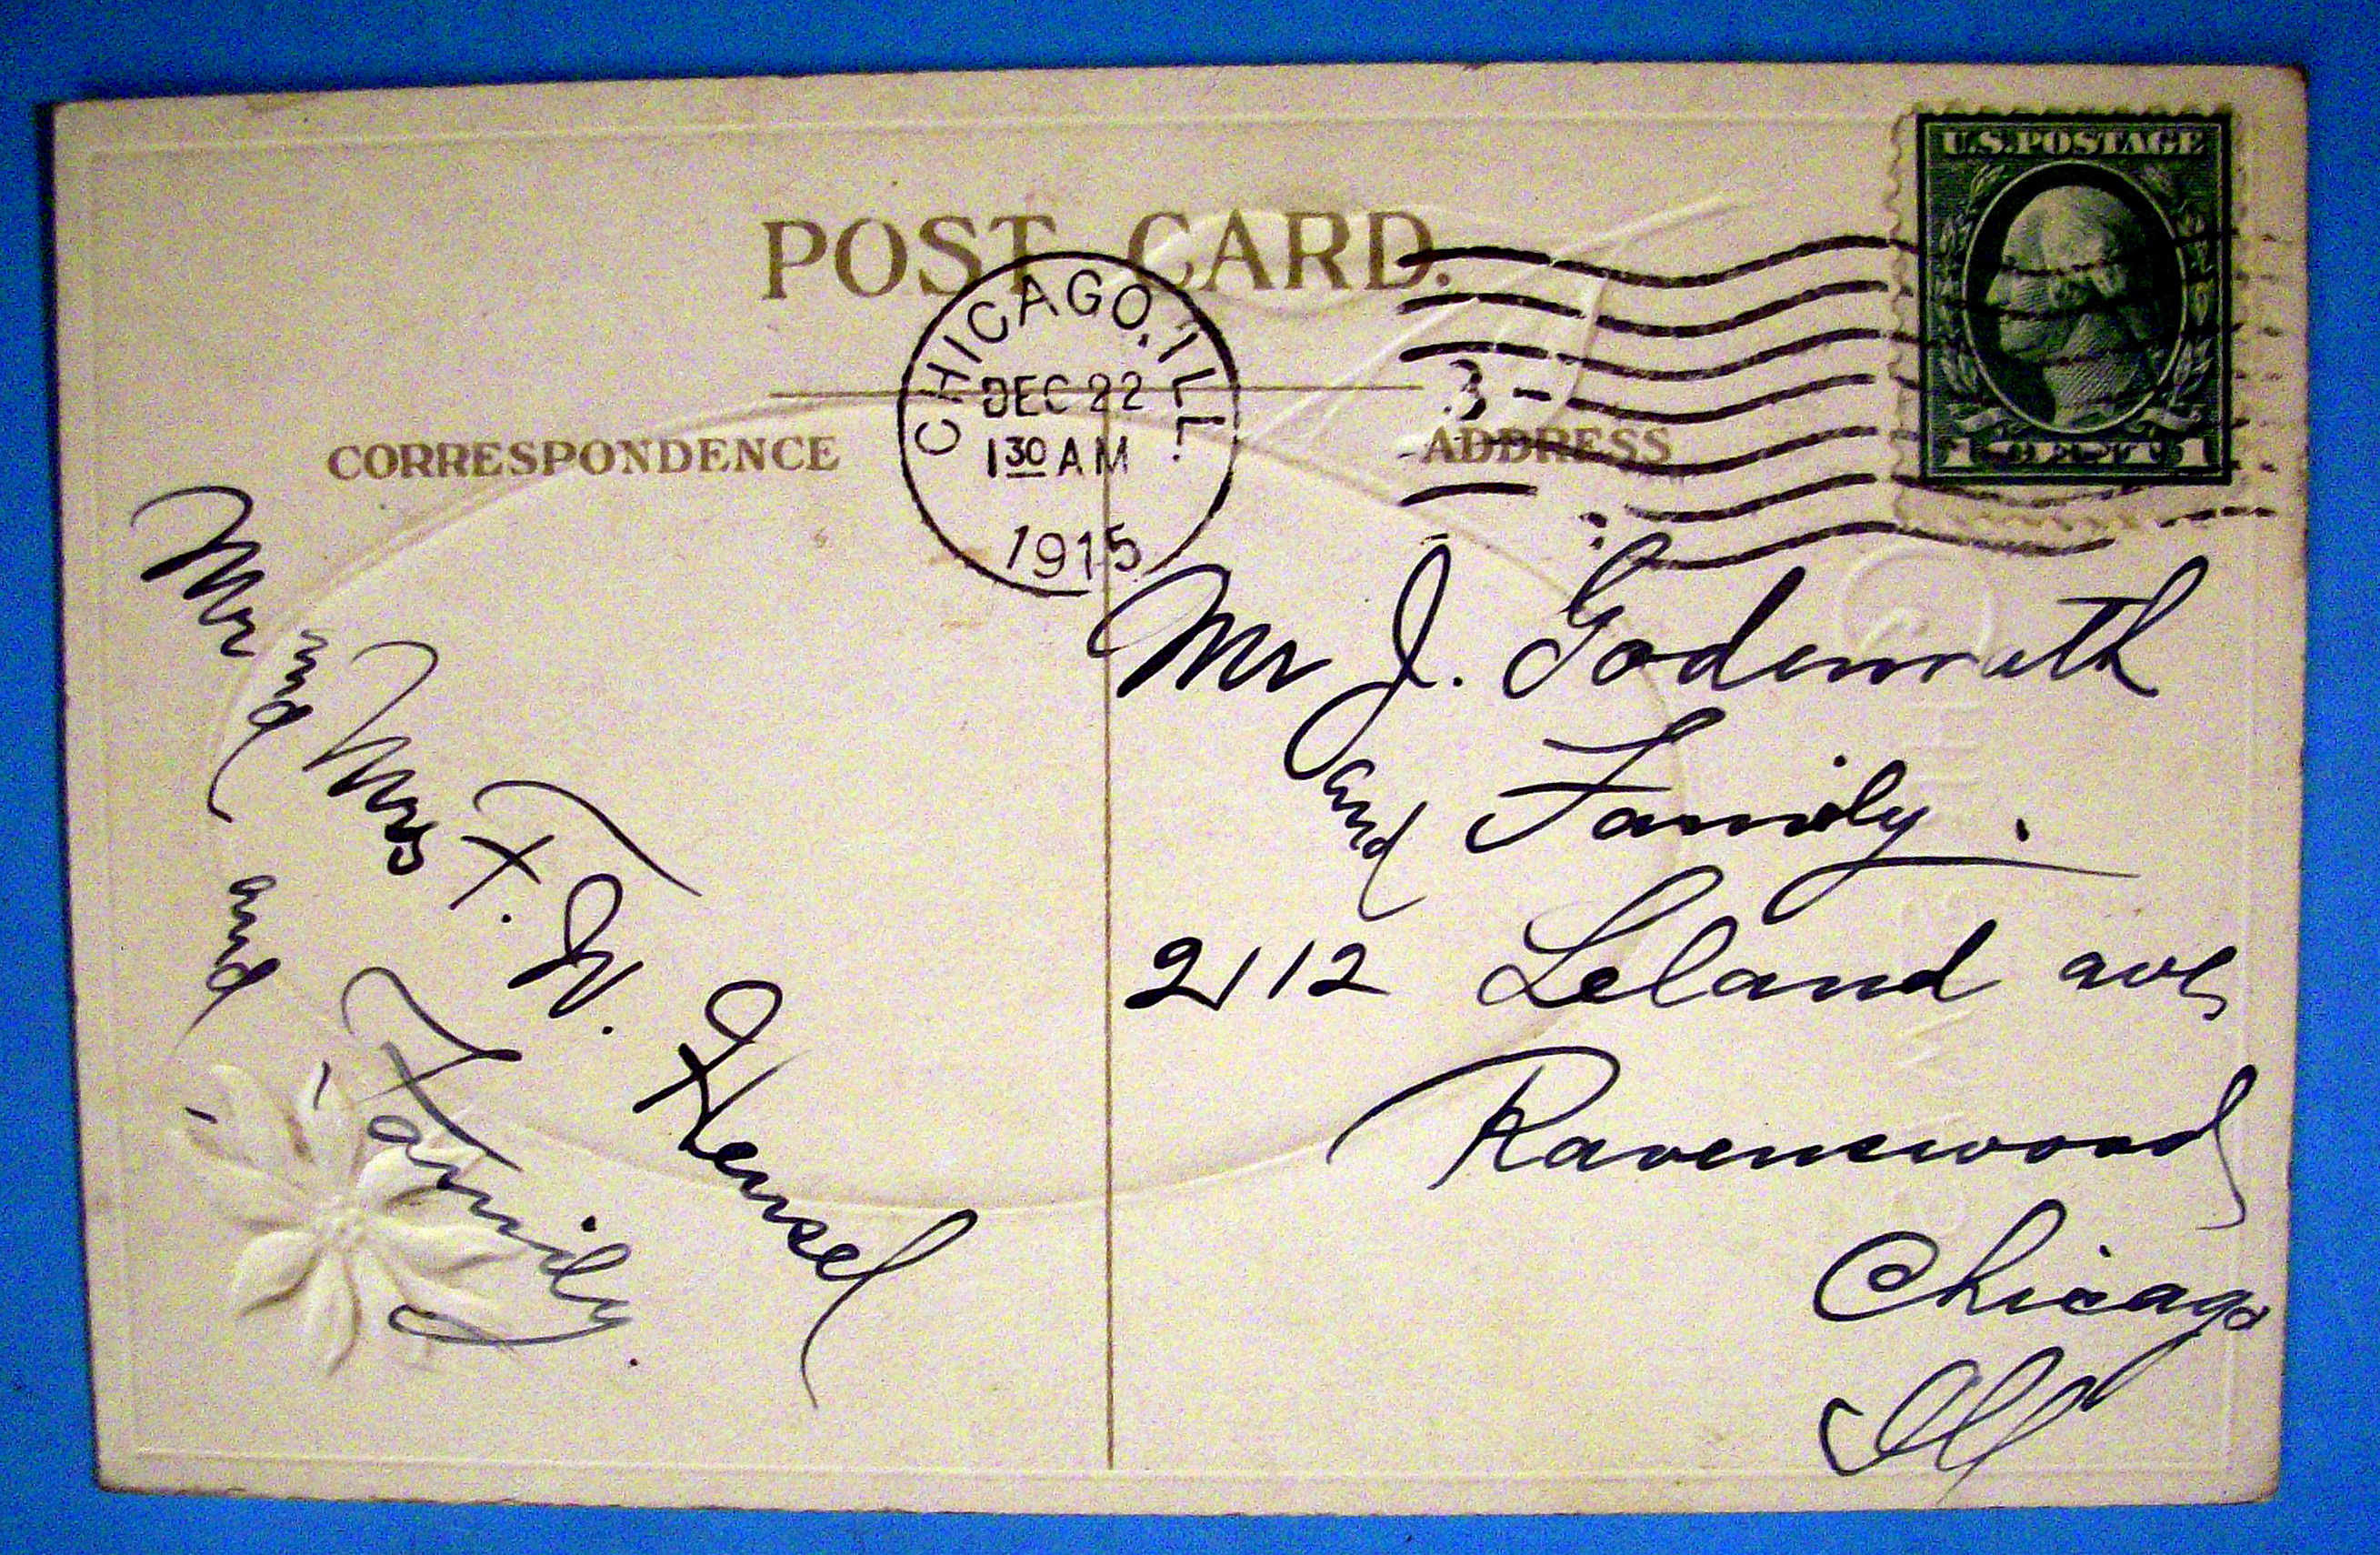 U.S.POSTAGE
POST CARD.
CHICAGO, ILL.
DEC 22
1 30 AM
1915
3
CORRESPONDENCE
ADDRESS
Mr and Mrs F. W. Hensel
and Family.
Mr J.
and Family.
2112 Leland ave
Ravenswood
Chicago
Ill